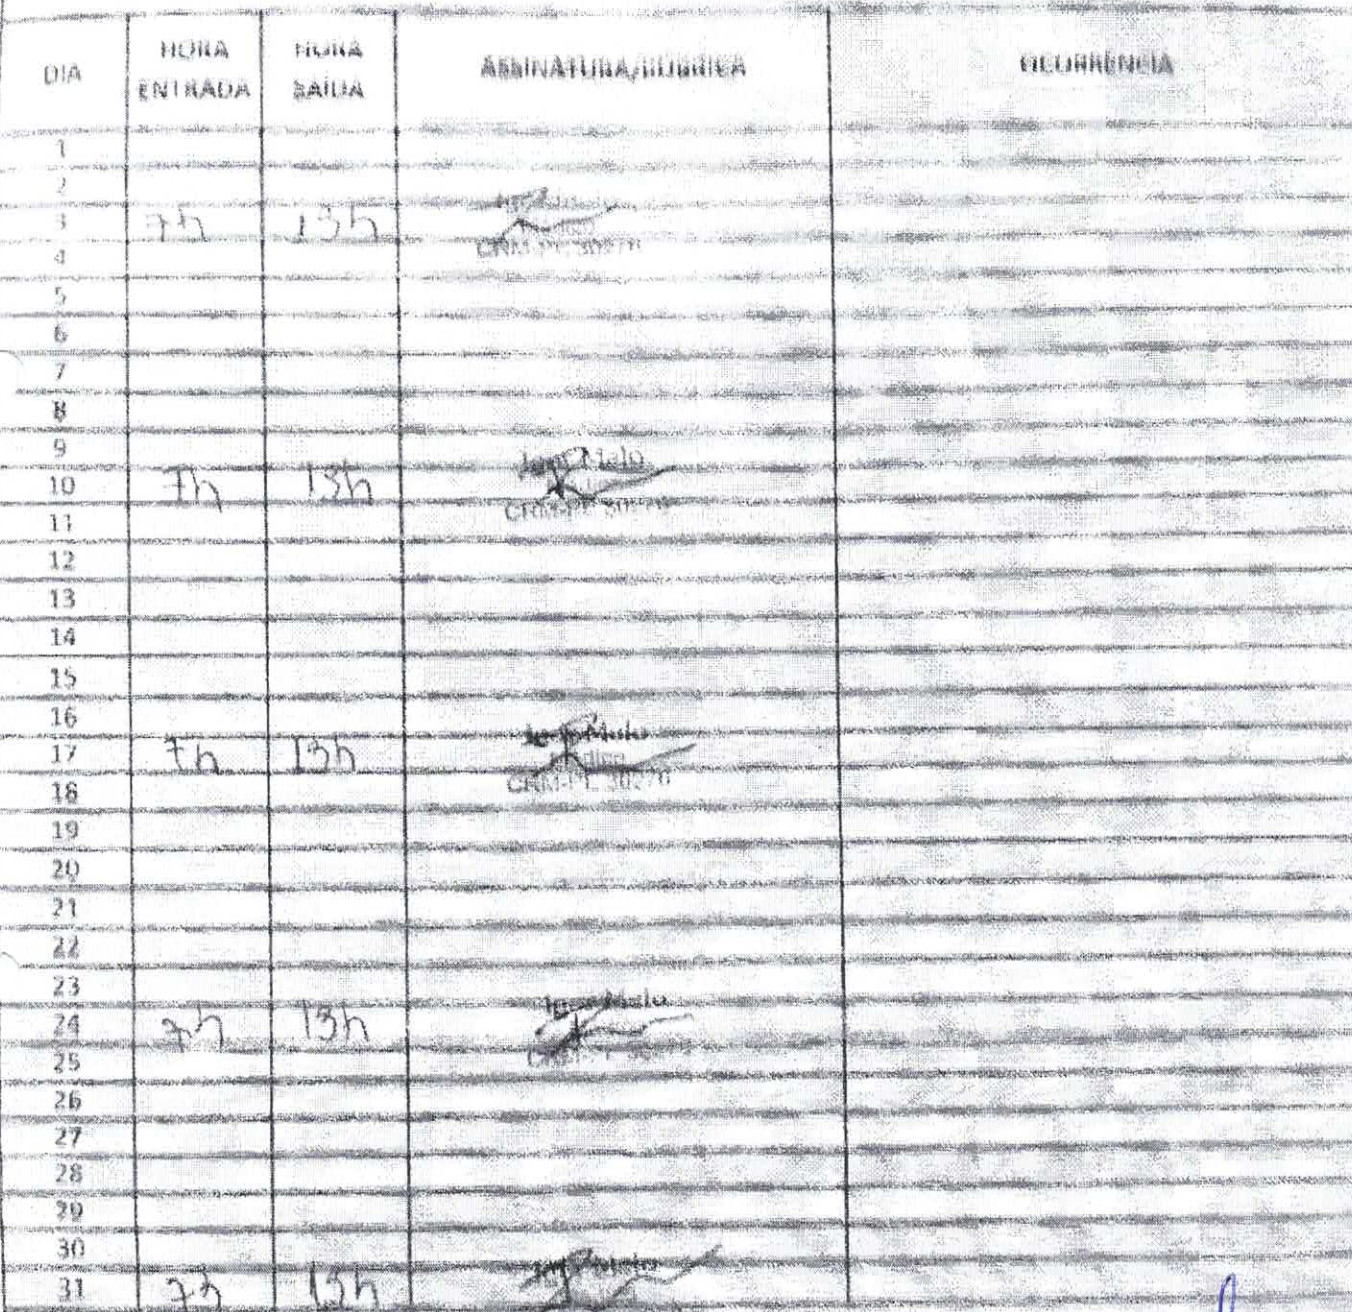 DIA HORA ENTRADA HORA SAÍDA ASSINATURA/RUBRICA OCORRÊNCIA
1
2
3 7h 13h
4
5
6
7
8
9
10 7h 13h Melo
11
12
13
14
15
16
17 7h 13h Melo
18
19
20
21
22
23
24 7h 13h Melo
25
26
27
28
29
30
31 7h 13h